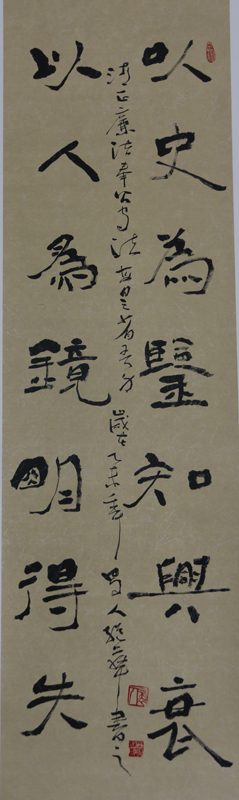 以史為鑒知興衰
以人為鏡明得失
清正廉洁奉公守法
歲在乙未年
書之